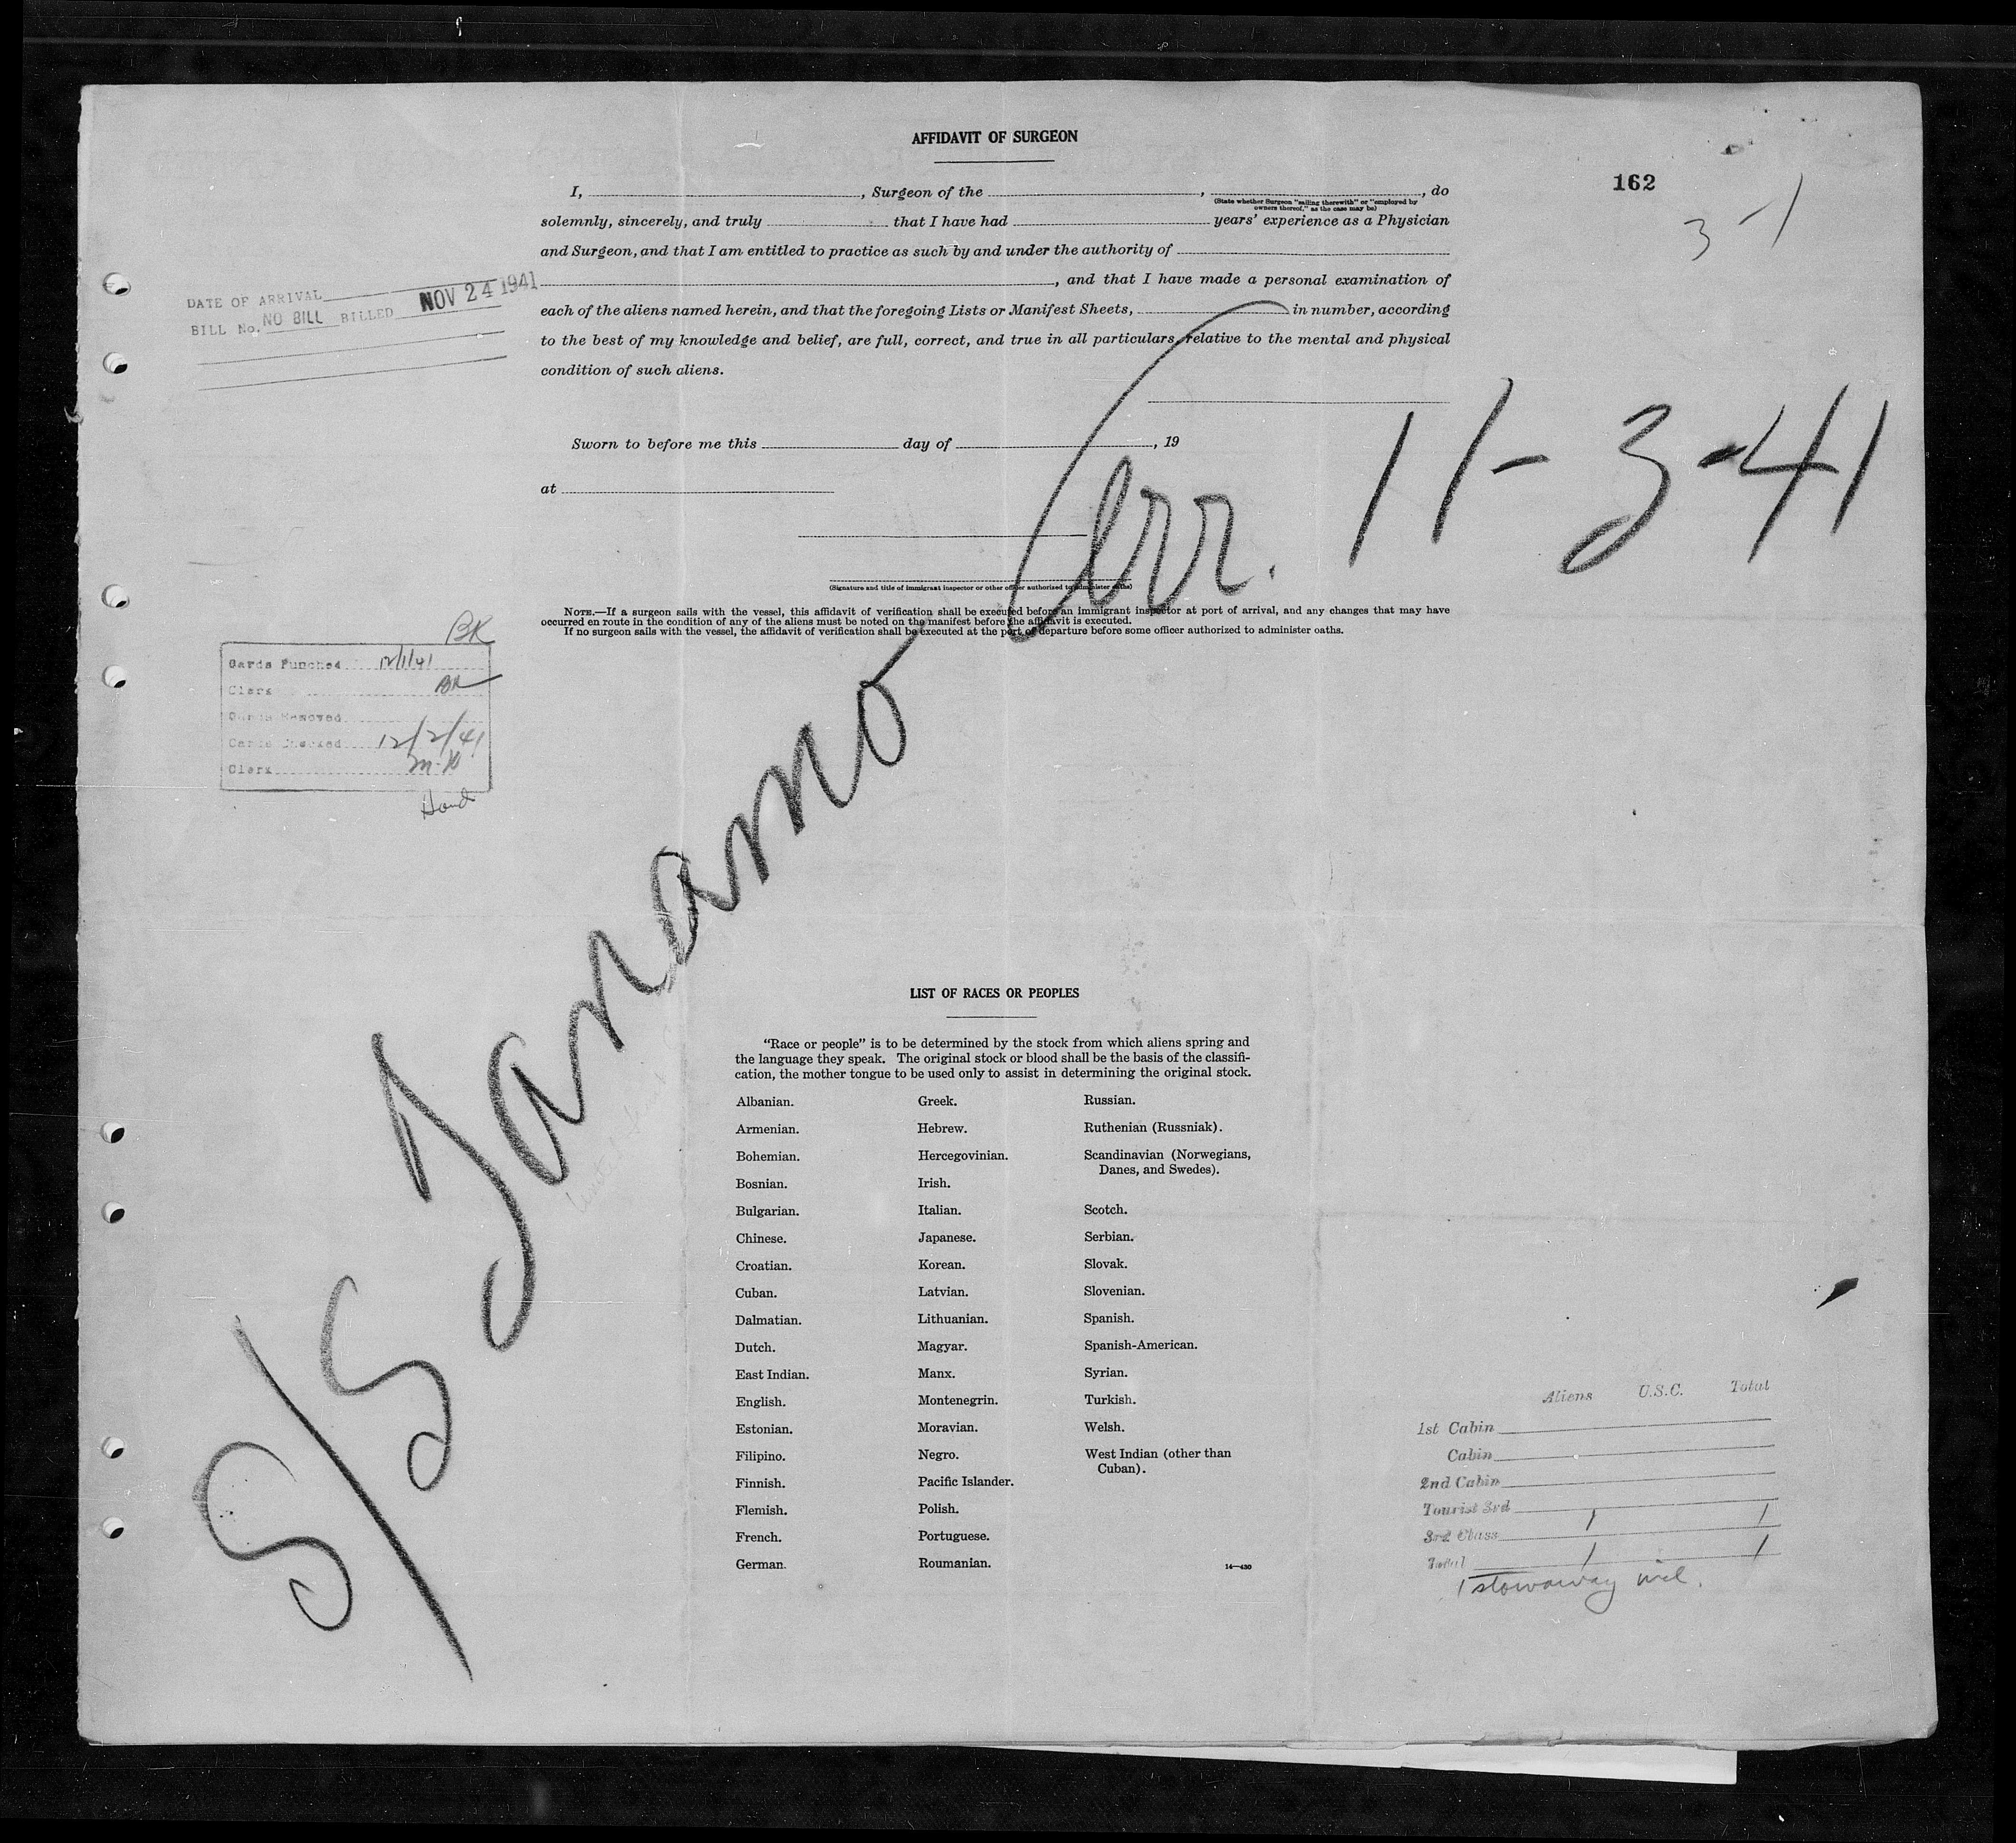 AFFIDAVIT OF SURGEON
162
3-1
I, , Surgeon of the , , do
(State whether Surgeon "sailing therewith" or "employed by
owners thereof," as the case may be)
solemnly, sincerely, and truly that I have had years' experience as a Physician
and Surgeon, and that I am entitled to practice as such by and under the authority of
, and that I have made a personal examination of
each of the aliens named herein, and that the foregoing Lists or Manifest Sheets, in number, according
to the best of my knowledge and belief, are full, correct, and true in all particulars, relative to the mental and physical
condition of such aliens.
DATE OF ARRIVAL
BILL No. NO BILL BILLED NOV 24 1941
Sworn to before me this day of , 19
at
Arr. 11-3-41
(Signature and title of immigrant inspector or other officer authorized to administer oaths)
NOTE.—If a surgeon sails with the vessel, this affidavit of verification shall be executed before an immigrant inspector at port of arrival, and any changes that may have
occurred en route in the condition of any of the aliens must be noted on the manifest before the affidavit is executed.
If no surgeon sails with the vessel, the affidavit of verification shall be executed at the port of departure before some officer authorized to administer oaths.
BK
Cards Punched 12/1/41
Clerk BK
Cards Removed
Cards Checked 12/2/41
Clerk
S/S
LIST OF RACES OR PEOPLES
"Race or people" is to be determined by the stock from which aliens spring and
the language they speak. The original stock or blood shall be the basis of the classifi-
cation, the mother tongue to be used only to assist in determining the original stock.
Albanian.
Armenian.
Bohemian.
Bosnian.
Bulgarian.
Chinese.
Croatian.
Cuban.
Dalmatian.
Dutch.
East Indian.
English.
Estonian.
Filipino.
Finnish.
Flemish.
French.
German.
Greek.
Hebrew.
Hercegovinian.
Irish.
Italian.
Japanese.
Korean.
Latvian.
Lithuanian.
Magyar.
Manx.
Montenegrin.
Moravian.
Negro.
Pacific Islander.
Polish.
Portuguese.
Roumanian.
Russian.
Ruthenian (Russniak).
Scandinavian (Norwegians,
Danes, and Swedes).
Scotch.
Serbian.
Slovak.
Slovenian.
Spanish.
Spanish-American.
Syrian.
Turkish.
Welsh.
West Indian (other than
Cuban).
14—430
Aliens U.S.C. Total
1st Cabin
Cabin
2nd Cabin
Tourist 3rd
3rd Class 1 1
Total 1 1
1 stowaway incl.